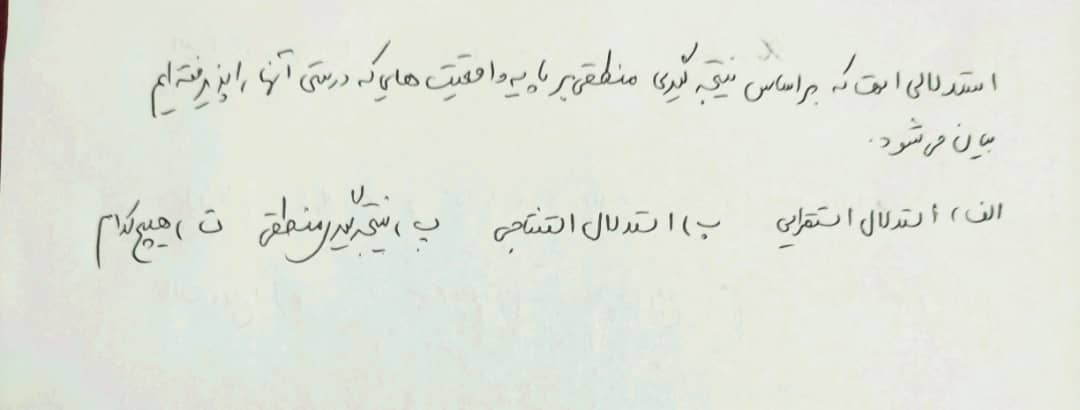 استدلالی است که براساس نتیجه گیری منطقی بر پایه واقعیت هایی که درستی آنها را پذیرفته ایم
بیان می شود.
الف) استدلال استقرایی ب) استدلال استنتاجی پ) نتیجه گیری منطقی ت) هیچ کدام